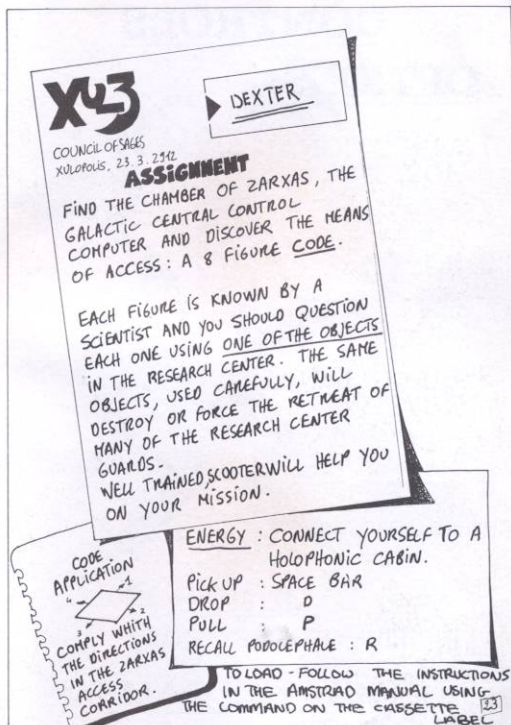 XU3
DEXTER
COUNCIL OF SAGES
XULOPOLIS, 23.3.2912
ASSIGNMENT
FIND THE CHAMBER OF ZARXAS, THE
GALACTIC CENTRAL CONTROL
COMPUTER AND DISCOVER THE MEANS
OF ACCESS: A 8 FIGURE CODE.
EACH FIGURE IS KNOWN BY A
SCIENTIST AND YOU SHOULD QUESTION
EACH ONE USING ONE OF THE OBJECTS
IN THE RESEARCH CENTER. THE SAME
OBJECTS, USED CAREFULLY, WILL
DESTROY OR FORCE THE RETREAT OF
MANY OF THE RESEARCH CENTER
GUARDS.
WELL TRAINED, SCOOTER WILL HELP YOU
ON YOUR MISSION.
CODE
APPLICATION
4 1
3 2
COMPLY WHITH
THE DIRECTIONS
IN THE ZARXAS
ACCESS
CORRIDOR.
ENERGY : CONNECT YOURSELF TO A
HOLOPHONIC CABIN.
PICK UP : SPACE BAR
DROP : D
PULL : P
RECALL PODOCEPHALE : R
TO LOAD - FOLLOW THE INSTRUCTIONS
IN THE AMSTRAD MANUAL USING
THE COMMAND ON THE CASSETTE
LABEL